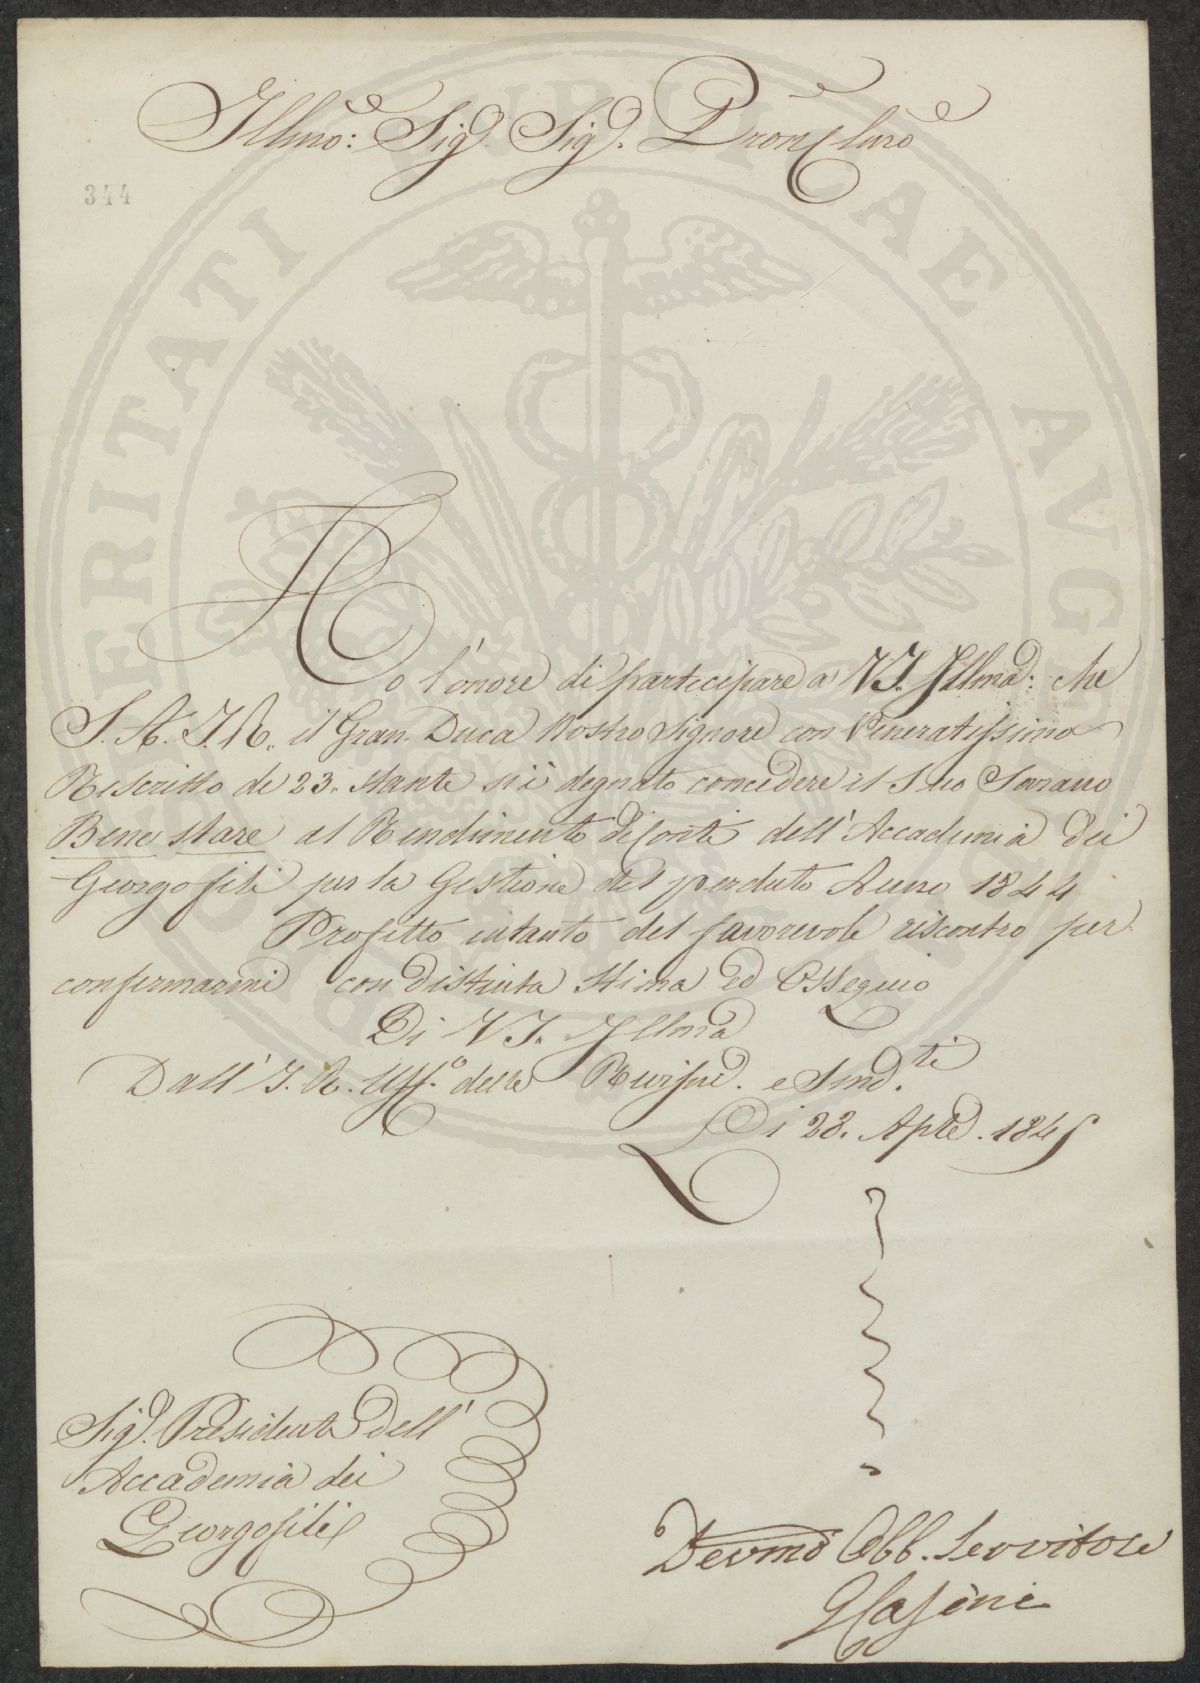 Illmo: Sigr. Sigr. Pron Clmo
344
Ho l'onore di partecipare a V. I. Illma: che
S. A. I. R. il Gran Duca Nostro Signore con Veneratissimo
Rescritto de 23. stante si è degnato concedere il Suo Sovrano
Bene stare al Rendimento di Conti dell'Accademia dei
Georgofili per la Gestione del perduto Anno 1844
Profitto intanto del favorevole riscontro per
confermarmi con distinta stima ed Ossequio
Di V. I. Illma
Dall' I. R. Uff.o delle Revisni. e Sind.ti
Li 28. Aple. 1845
Sigr. Presidente dell'
Accademia dei
Georgofili
Devmo Obb. Servitore
VERITATI PVBLICAE AVG